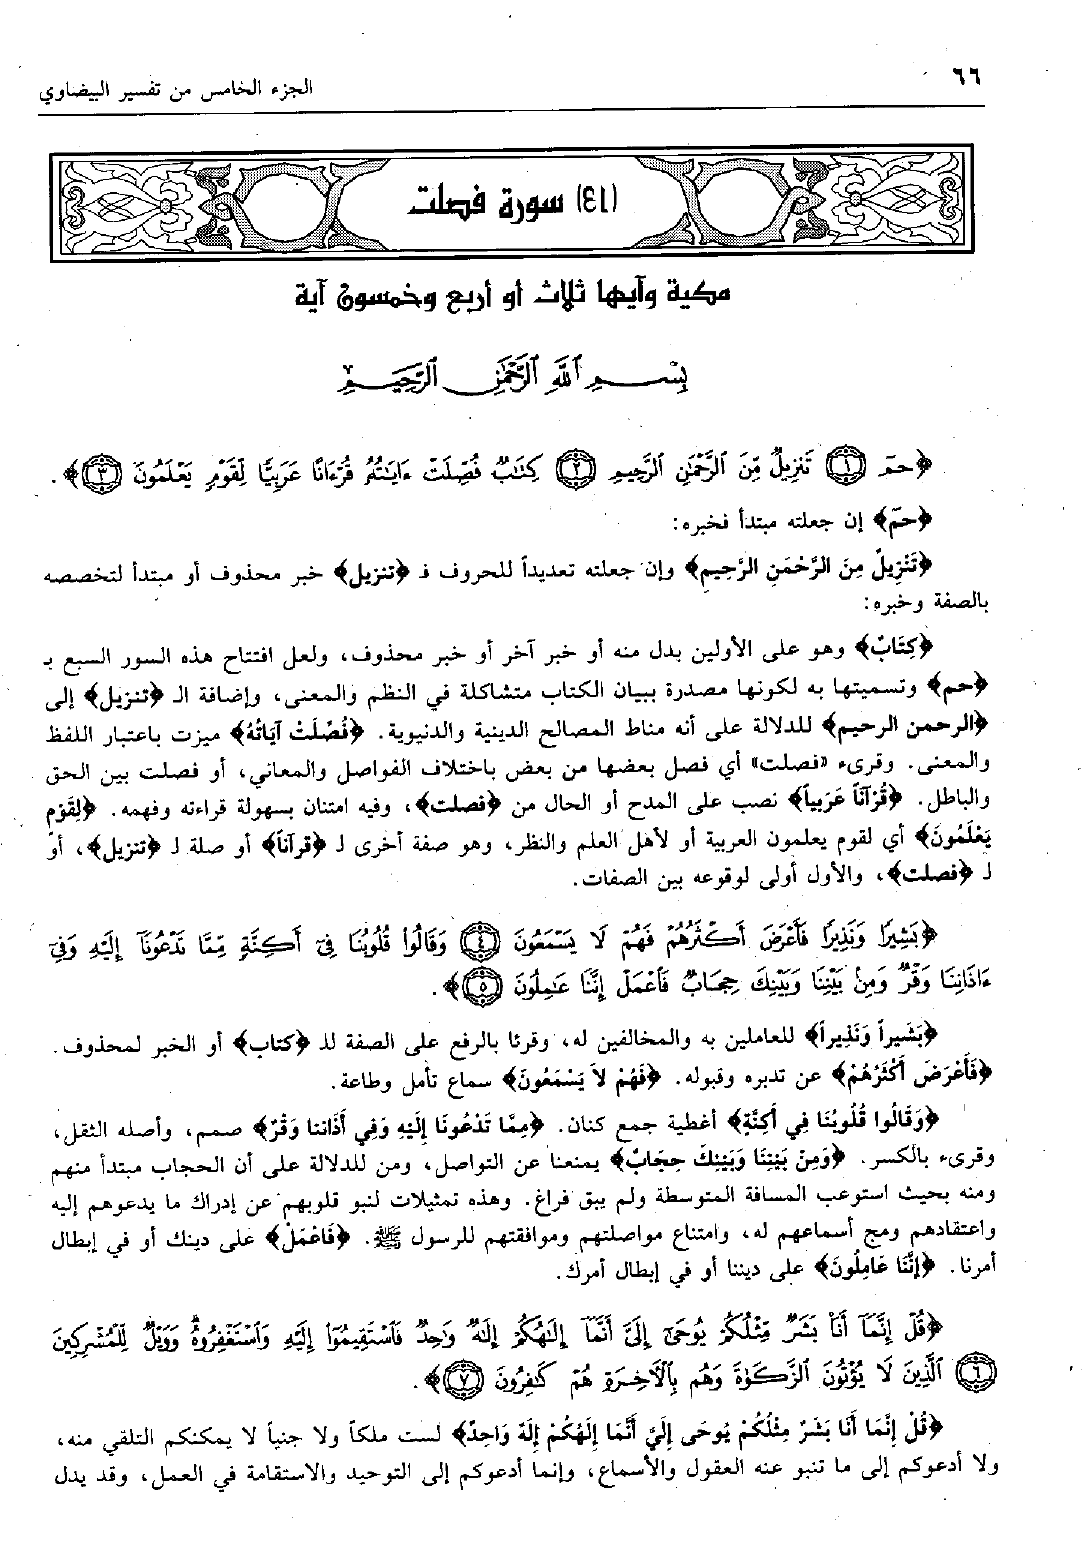 ٦٦
الجزء الخامس من تفسير البيضاوي
(٤١) سورة فصلت
مكية وآيها ثلاث أو أربع وخمسون آية
بِسْمِ ٱللَّهِ ٱلرَّحْمَٰنِ ٱلرَّحِيمِ
﴿حمٓ ١ تَنزِيلٌ مِّنَ ٱلرَّحْمَٰنِ ٱلرَّحِيمِ ٢ كِتَٰبٌ فُصِّلَتْ ءَايَٰتُهُۥ قُرْءَانًا عَرَبِيًّا لِّقَوْمٍ يَعْلَمُونَ ٣﴾.
﴿حمٓ﴾ إن جعلته مبتدأ فخبره:
﴿تَنْزِيلٌ مِنَ الرَّحْمَنِ الرَّحِيمِ﴾ وإن جعلته تعديداً للحروف فـ ﴿تنزيل﴾ خبر محذوف أو مبتدأ لتخصصه
بالصفة وخبره:
﴿كِتَابٌ﴾ وهو على الأولين بدل منه أو خبر آخر أو خبر محذوف، ولعل افتتاح هذه السور السبع بـ
﴿حم﴾ وتسميتها به لكونها مصدرة ببيان الكتاب متشاكلة في النظم والمعنى، وإضافة الـ ﴿تنزيل﴾ إلى
﴿الرحمن الرحيم﴾ للدلالة على أنه مناط المصالح الدينية والدنيوية. ﴿فُصِّلَتْ آيَاتُهُ﴾ ميزت باعتبار اللفظ
والمعنى. وقرىء «فصلت» أي فصل بعضها من بعض باختلاف الفواصل والمعاني، أو فصلت بين الحق
والباطل. ﴿قُرْآناً عَرَبِياً﴾ نصب على المدح أو الحال من ﴿فصلت﴾، وفيه امتنان بسهولة قراءته وفهمه. ﴿لِقَوْمٍ
يَعْلَمُونَ﴾ أي لقوم يعلمون العربية أو لأهل العلم والنظر، وهو صفة أخرى لـ ﴿قرآناً﴾ أو صلة لـ ﴿تنزيل﴾، أو
لـ ﴿فصلت﴾، والأول أولى لوقوعه بين الصفات.
﴿بَشِيرًا وَنَذِيرًا فَأَعْرَضَ أَكْثَرُهُمْ فَهُمْ لَا يَسْمَعُونَ ٤ وَقَالُوا۟ قُلُوبُنَا فِىٓ أَكِنَّةٍ مِّمَّا تَدْعُونَآ إِلَيْهِ وَفِىٓ
ءَاذَانِنَا وَقْرٌ وَمِنۢ بَيْنِنَا وَبَيْنِكَ حِجَابٌ فَٱعْمَلْ إِنَّنَا عَٰمِلُونَ ٥﴾.
﴿بَشِيراً وَنَذِيراً﴾ للعاملين به والمخالفين له، وقرئا بالرفع على الصفة للـ ﴿كتاب﴾ أو الخبر لمحذوف.
﴿فَأَعْرَضَ أَكْثَرُهُمْ﴾ عن تدبره وقبوله. ﴿فَهُمْ لاَ يَسْمَعُونَ﴾ سماع تأمل وطاعة.
﴿وَقَالُوا قُلُوبُنَا فِي أَكِنَّةٍ﴾ أغطية جمع كنان. ﴿مِمَّا تَدْعُونَا إِلَيْهِ وَفِي آذَانِنا وَقْرٌ﴾ صمم، وأصله الثقل،
وقرىء بالكسر. ﴿وَمِنْ بَيْنِنَا وَبَيْنِكَ حِجَابٌ﴾ يمنعنا عن التواصل، ومن للدلالة على أن الحجاب مبتدأ منهم
ومنه بحيث استوعب المسافة المتوسطة ولم يبق فراغ. وهذه تمثيلات لنبو قلوبهم عن إدراك ما يدعوهم إليه
واعتقادهم ومج أسماعهم له، وامتناع مواصلتهم وموافقتهم للرسول ﷺ. ﴿فَاعْمَلْ﴾ على دينك أو في إبطال
أمرنا. ﴿إِنَّنَا عَامِلُونَ﴾ على ديننا أو في إبطال أمرك.
﴿قُلْ إِنَّمَآ أَنَا۠ بَشَرٌ مِّثْلُكُمْ يُوحَىٰٓ إِلَىَّ أَنَّمَآ إِلَٰهُكُمْ إِلَٰهٌ وَٰحِدٌ فَٱسْتَقِيمُوٓا۟ إِلَيْهِ وَٱسْتَغْفِرُوهُ وَوَيْلٌ لِّلْمُشْرِكِينَ
٦ ٱلَّذِينَ لَا يُؤْتُونَ ٱلزَّكَوٰةَ وَهُم بِٱلْأَخِرَةِ هُمْ كَٰفِرُونَ ٧﴾.
﴿قُلْ إِنَّمَا أَنَا بَشَرٌ مِثْلُكُمْ يُوحَى إِلَيَّ أَنَّمَا إِلَهُكُمْ إِلَهٌ وَاحِدٌ﴾ لست ملكاً ولا جنياً لا يمكنكم التلقي منه،
ولا أدعوكم إلى ما تنبو عنه العقول والأسماع، وإنما أدعوكم إلى التوحيد والاستقامة في العمل، وقد يدل